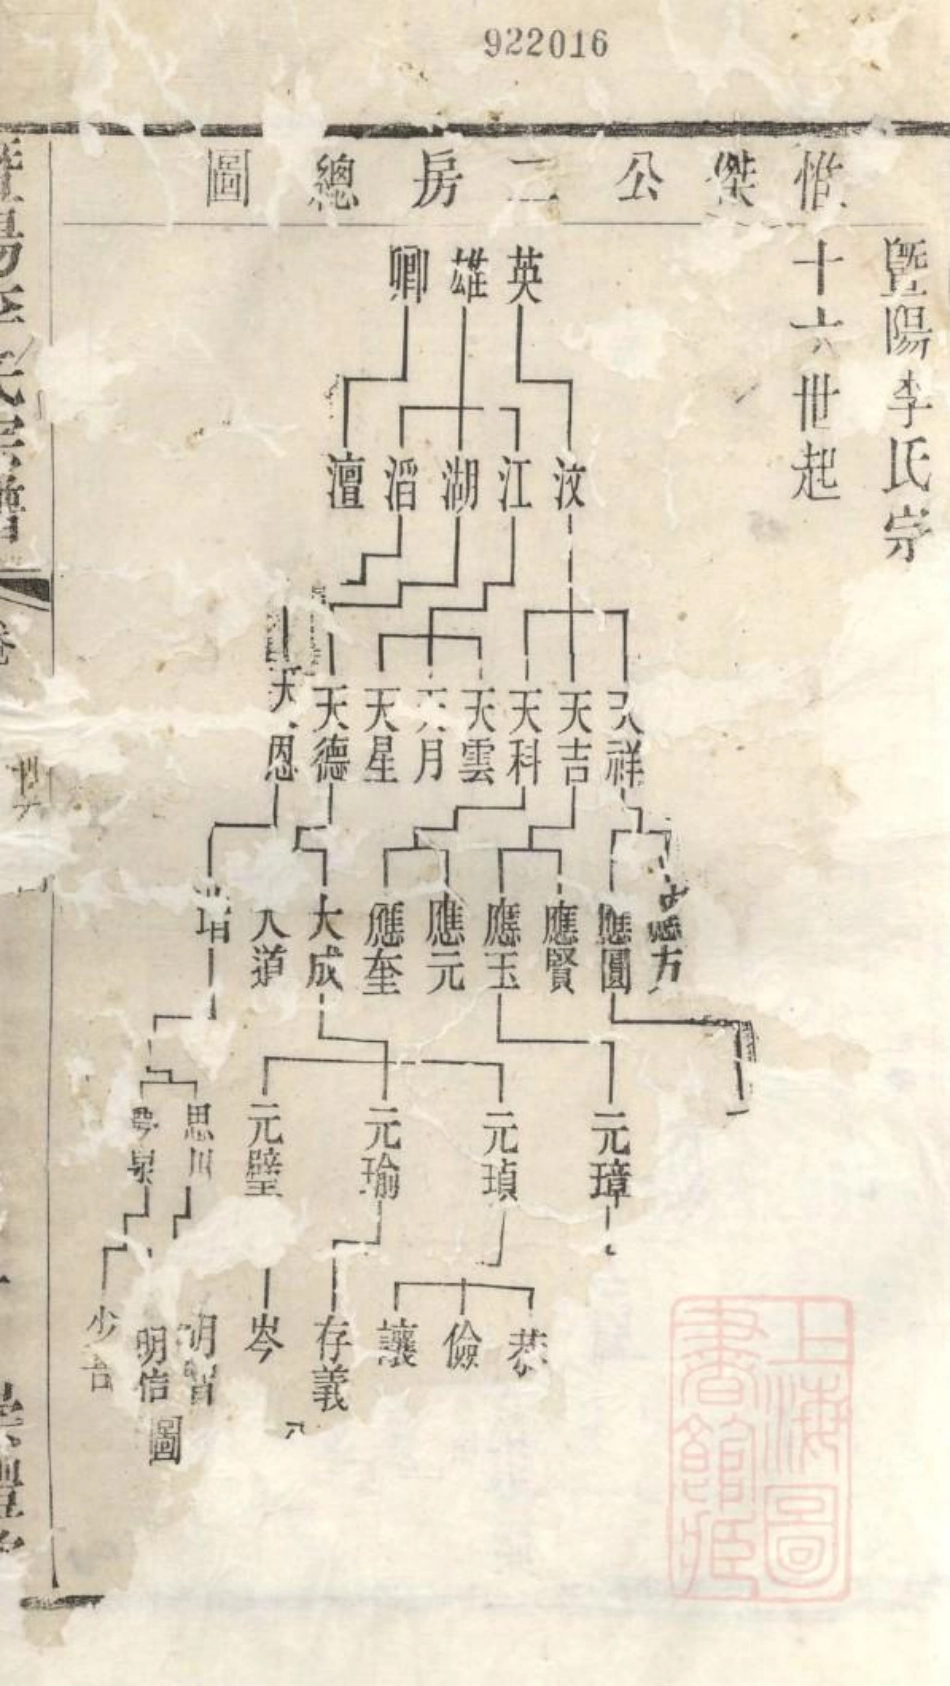 922016
惟傑公二房總圖
暨陽李氏宗
十六世起
英 雄 卿
汶 江 湖 滔 澶
天祥 天吉 天科 天雲 天月 天星 天德 天恩
應圓 應賢 應玉 應元 應奎 大成 大道
元璋 元瑱 元瑜 元璧 思川 夢泉
恭 儉 讓 存義 岑 明智 明信 少吾
圖
暨陽李氏宗譜
卷
世
上海圖書館藏